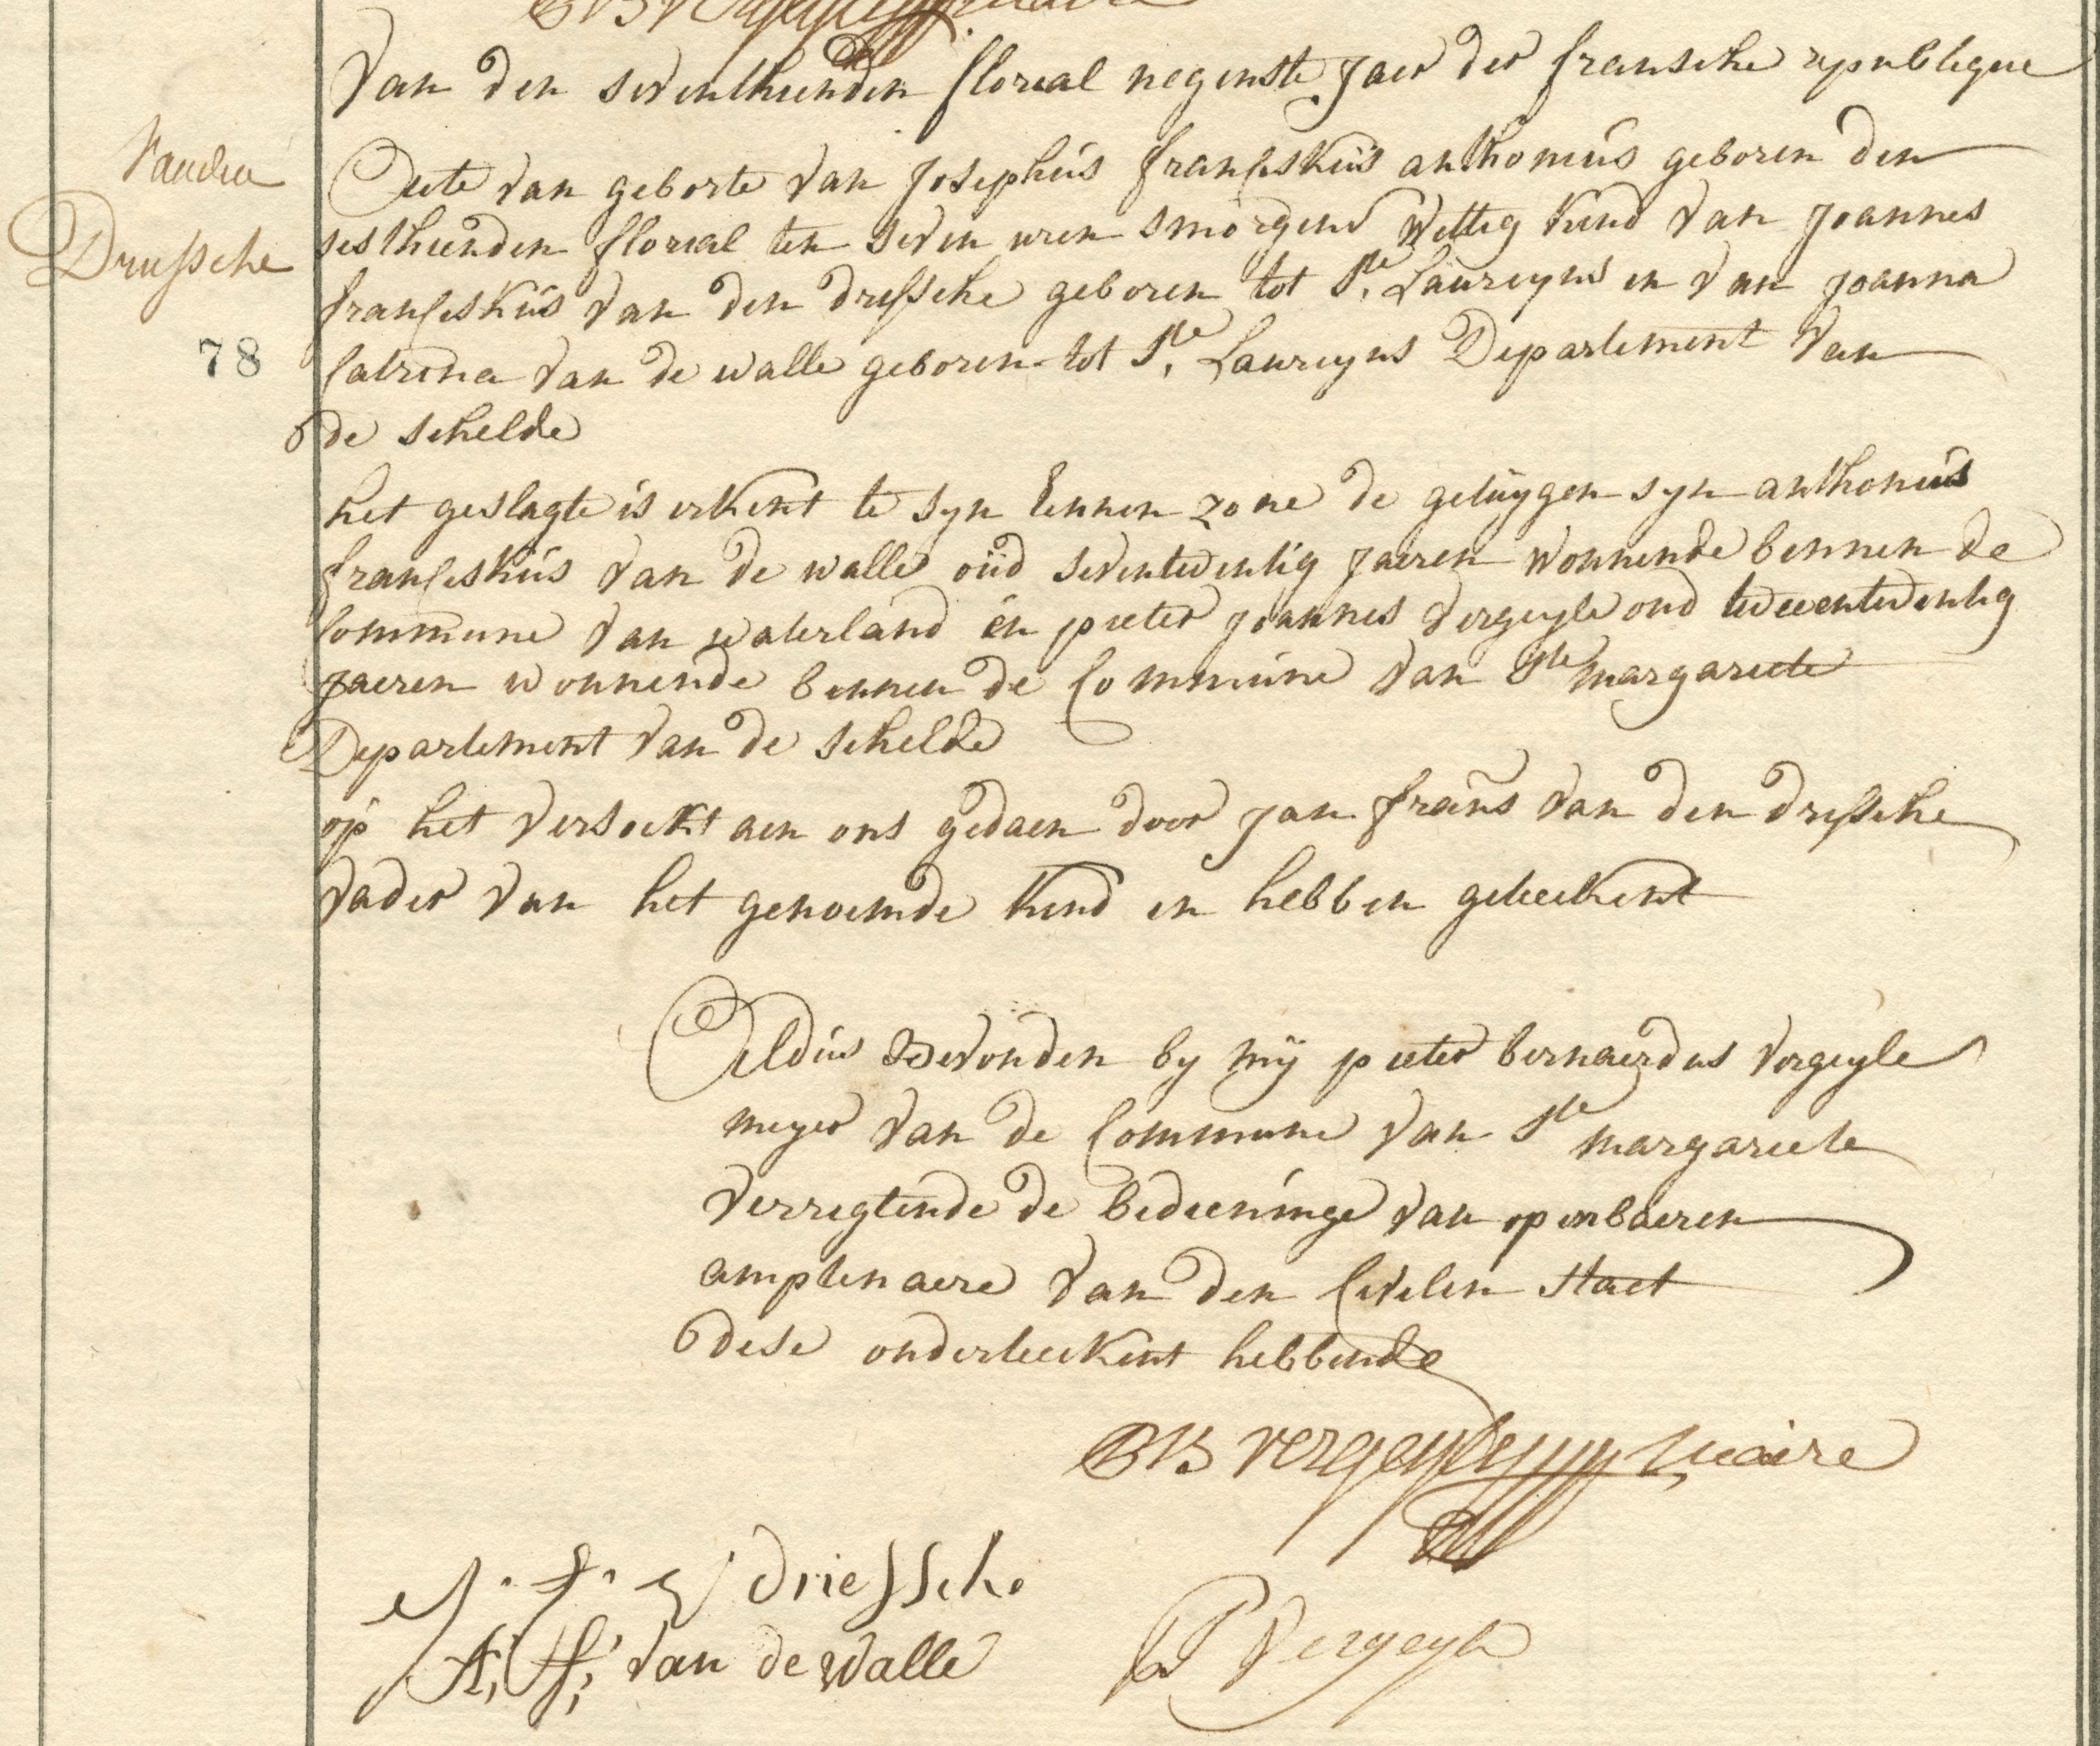 Van den seventhienden floreal negenste Jaer der fransche republique
Vanden
Drissche
78
Acte van geborte van Josephus franciskus anthonius geboren den
sesthienden floreal ten seven uren smorgens wettig kind van Joannes
franciskus van den drissche geboren tot Ste Laureyns en van joanna
Catrina van de walle geboren tot Ste Laureyns Departement van
de schelde
het geslagte is erkent te syn eennen zone de getuygen syn anthonius
franciskus van de walle oud seventwentig jaeren wonnende binnen de
Commune van waterland en pieter joannes vergeyle oud tweeentwentig
jaeren wonnende binnen de Commune van Ste margariete
Departement van de schelde
op het versoekt aen ons gedaen door jan frans van den drissche
vader van het genoemde kind en hebben geteekent
Aldus Bevonden by my pieter bernaerdus vergeyle
meyer van de Commune van Ste margariete
verrigtende de bedieninge van openbaeren
amptenaere van den Civilen staet
dese onderteekent hebbende
PB vergeyle maire
J. F. V Driessche
A, F, van de walle
PJ Vergeyle